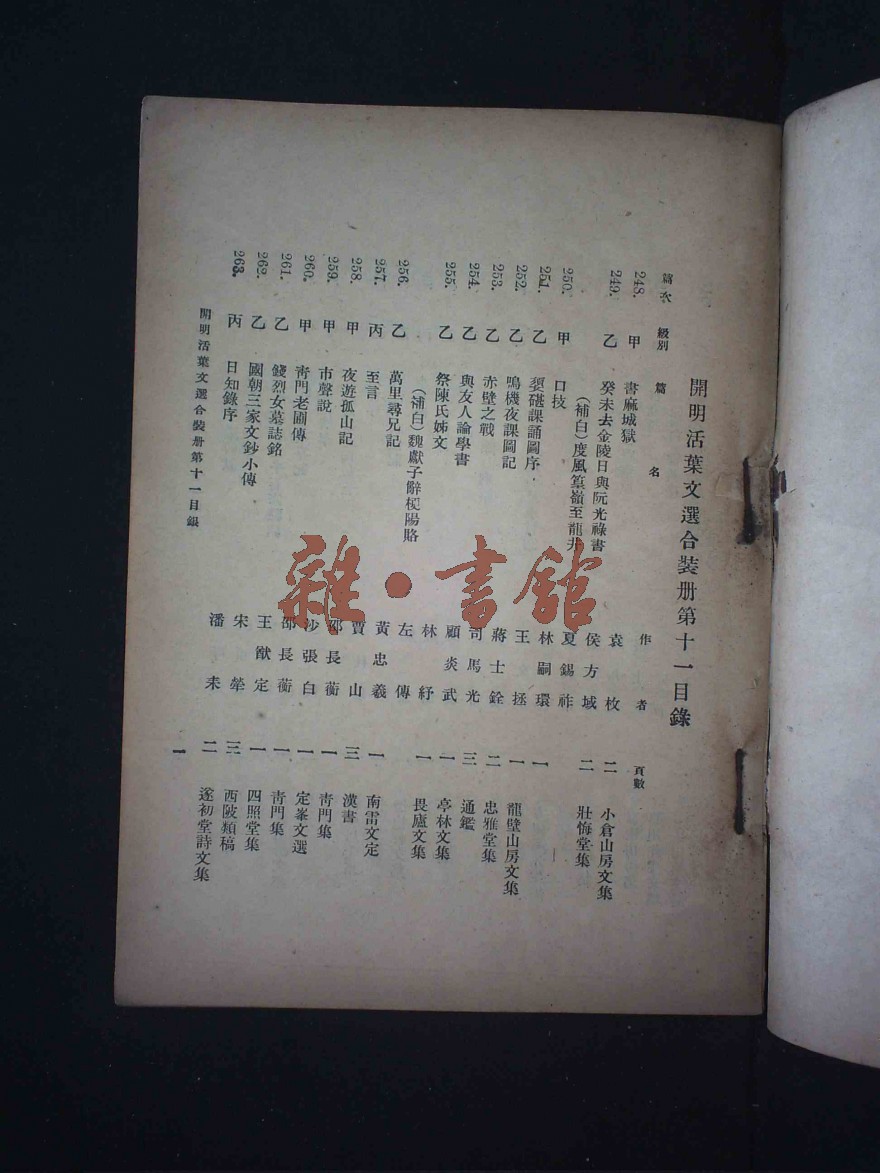 開明活葉文選合裝册第十一目錄
篇次 級別 篇名 作者 頁數
248. 甲 書麻城獄 袁枚 二 小倉山房文集
249. 乙 癸未去金陵日與阮光祿書 侯方域 二 壯悔堂集
(補白)度風篁嶺至龍井 夏錫祚
250. 甲 口技 林嗣環 一
251. 乙 媭碪課誦圖序 王拯 一 龍壁山房文集
252. 乙 鳴機夜課圖記 蔣士銓 二 忠雅堂集
253. 乙 赤壁之戰 司馬光 三 通鑑
254. 乙 與友人論學書 顧炎武 二 亭林文集
255. 乙 祭陳氏姊文 林紓 一 畏廬文集
(補白)魏獻子辭梗陽賂 左傳
256. 乙 萬里尋兄記 黃忠羲 一 南雷文定
257. 丙 至言 賈山 三 漢書
258. 甲 夜遊孤山記 邵長蘅 一 靑門集
259. 甲 市聲說 沙張白 一 定峯文選
260. 甲 靑門老圃傳 邵長蘅 一 靑門集
261. 乙 錢烈女墓誌銘 王猷定 一 四照堂集
262. 乙 國朝三家文鈔小傳 宋犖 三 西陂類稿
263. 丙 日知錄序 潘耒 二 遂初堂詩文集
開明活葉文選合裝册第十一目錄 一
雜·書館